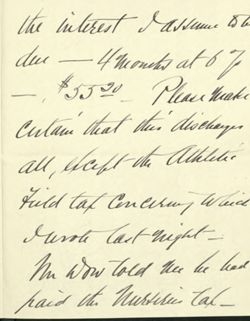 the interest I assume to be
due — 4 months at 6 %
—, $55 20 — Please make
certain that this discharges
all, except the Athletic
Field tax concerning which
I wrote last night —
Mr Dow told me he had
paid the Nurseries tax —